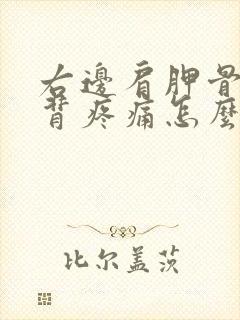 右邊肩胛骨
背疼痛怎麼
比尔盖茨